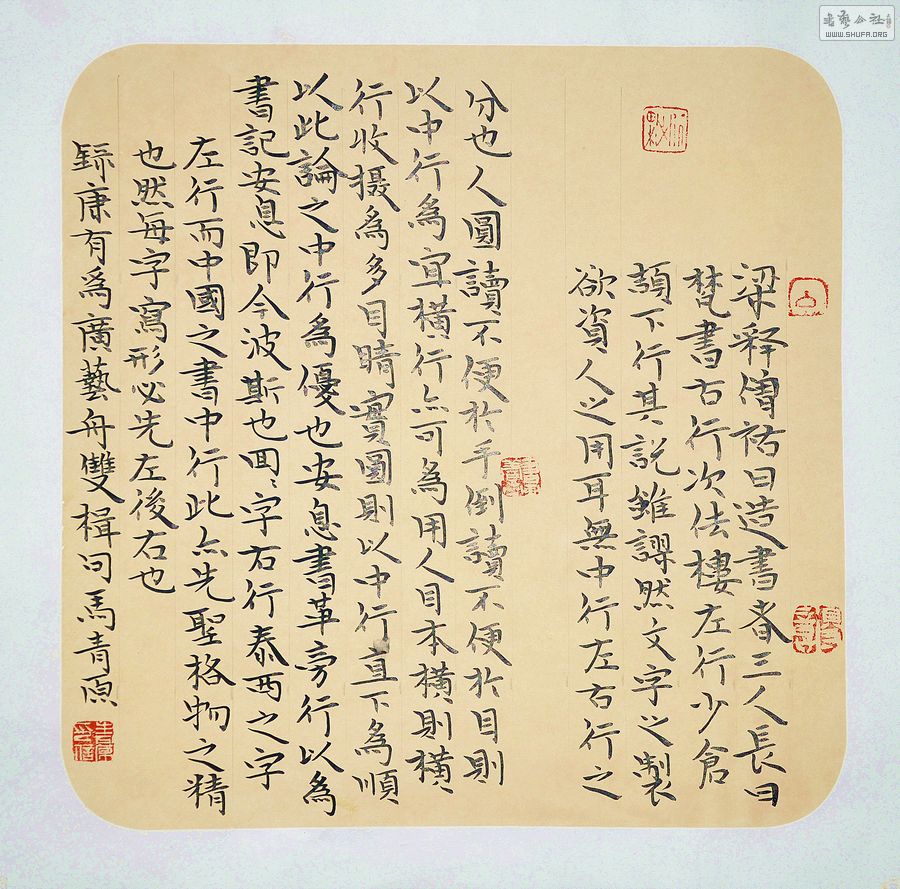 梁释僧祐曰造書者三人長曰
梵書右行次佉樓左行少倉
頡下行其説雖謬然文字之製
欲資人之用耳無中行左右行之
分也人圓讀不便於手倒讀不便於目則
以中行爲宜橫行亦可爲用人目本橫則橫
行收摄爲多目睛實圓則以中行直下爲順
以此論之中行爲優也安息書革旁行以爲
書記安息即今波斯也囬〻字右行泰西之字
左行而中國之書中行此亦先聖格物之精
也然每字寫形必先左後右也
録康有爲廣藝舟雙楫句馬青原
書藝公社
WWW.SHUFA.ORG